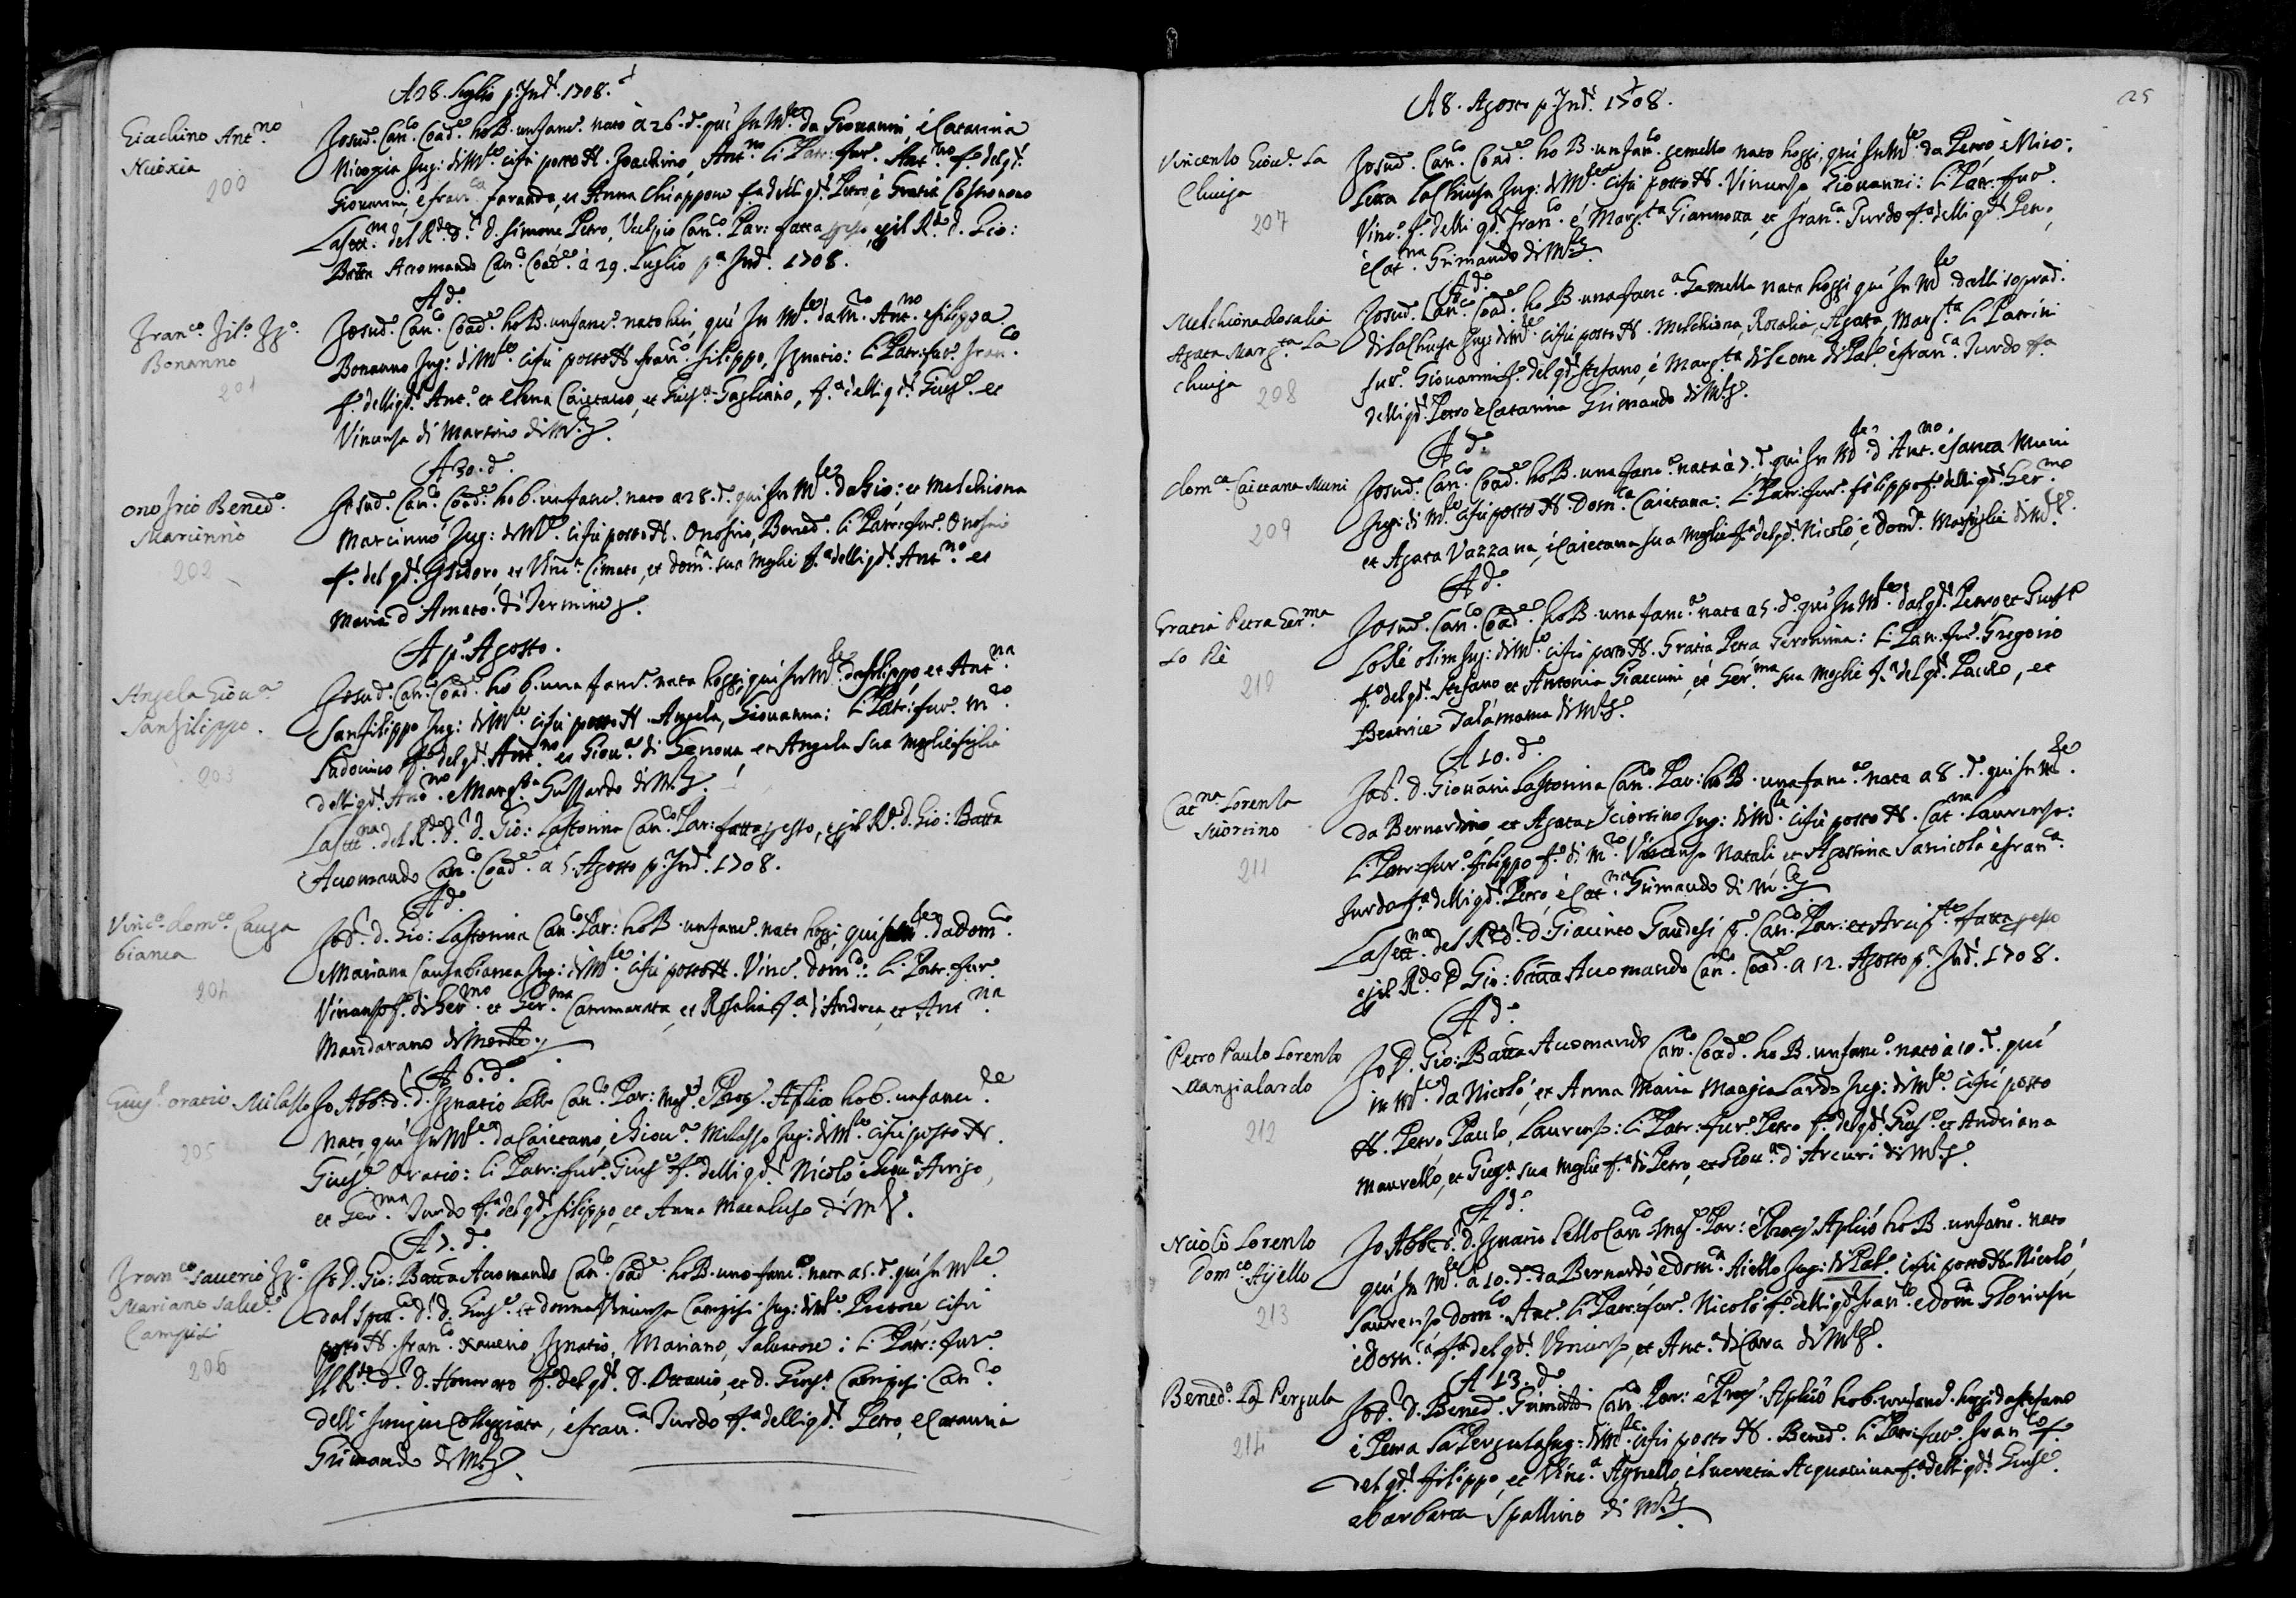 A 28. Luglio p. Ind. 1708.
Giachino Ant.no
Nicoxia
200
Io sud. Can.co Coad.e ho B. un fanc.o nato à 26. d. quì In M.le da Giovanni, è Catarina
Nicoxia Iug: di M.le cifù posto N. Joachino, Ant.no li Patr: fur.o Ant.no f.o del qd.
Giovanni, è fran.ca faranda, et Anna Chiappone f.a delli qd. Petro è Gratia
La sett.na del R.do D.r D. Simone Petro, Vulpio Can.co Par: fatta p esso, e p il R.do D. Gio:
Batta Accomando Can.co Coad.e à 29. Luglio p.a Ind. 1708.
A d.
Fran.co Fil.o Ig.o
Bonanno
201
Io sud. Can.co Coad.e ho B. un fanc.o nato hieri quì In M.le da M.ro Ant.no è filippa
Bonanno Iug: di M.le cifù posto N. fran.co filippo, Ignatio: li Patr: fur.o fran.co
f.o delli qd. Ant.o et Elena Caietano, et Gius.a Gagliano, f.a delli qd. Gius.e et
Vincenza di Martino di M.le
A 30. d.
Onofrio Bened.o
Marcinnò
202
Io sud. Can.co Coad.e ho b. un fanc.o nato a 28. d. qui In M.le da Gio: et Melchiona
Marcinnò Iug: di M.le cifù posto N. Onofrio, Bened.o li Patr: fur.o Onofrio
f.o del qd. Isidoro, et Vinc.a Cimato, et Dom.ca sua moglie f.a delli qd. Ant.no et
Maria d'Amato di Termine
A p.o Agosto.
Angela Giou.a
Sanfilippo.
203
Io sud. Can.co Coad.e ho b. una fanc.a nata hoggi quì In M.le da filippo, et Ant.na
Sanfilippo Iug: di M.le cifù posto N. Angela, Giovanna: li Patr: fur.o M.ro
Ludovico f.o del qd. Ant.no et Giou.a di Genova, et Angela sua moglie figlia
delli qd. Ant.no e Marg.ta Guffardo di M.le
La sett.na del R.do D.r D. Gio: La Storina Can.co Par: fatta p esso, e p il R.do D. Gio: Batta
Accomando Can.co Coad.e a 5. Agosto p. Ind. 1708.
A d.
Vinc.o Dom.co Causa
bianca
204
Io D.r D. Gio: La Storina Can.co Par: ho B. un fanc.o nato hoggi quì In M.le da Dom.co
e Mariana Causabianca Iug: di M.le cifù posto N. Vinc.o Dom.co: li Patr. fur.o
Vincenzo f.o di Ger.mo et Ger.ma Cammarata, et Rosalia f.a d'Andrea, et Ant.na
Mandarano di Monte.
A 6. d.
Gius.e Oratio Milasso
205
Io Abb. D.r D. Ignatio Lello Can.co Par: Mag. è Proy. Ap.lico ho b. un fanc.o
nato quì In M.le da Caietano, è Giou.a Milasso Iug: di M.le cifù posto N.
Gius.e Oratio: li Patr: fur.o Gius.e f.o delli qd. Nicolò è Giou.a Arrigo,
et Ger.ma Turdo f.a del qd. filippo, et Anna Macaluso di M.le
A 7. d.
Fran.co Saverio Ig.o
Mariano Salu.e
Campisi
206
Io D. Gio: Batta Accomando Can.co Coad.e ho B. uno fanc.o nato a 5. d. quì In M.le
dal Spett. D.r D. Gius.e et donna Vincenza Campisi Iug: di M.le Pretore cifù
posto N. Fran.co Xaverio, Ignatio, Mariano, Salvatore: li Patr: fur.o
Il R.do D.r D. Honorato f.o del qd. D. Ottavio, et D. Gius.a Campisi Can.co
dell' Insigne Collegiata, è fran.ca Turdo f.a delli qd. Petro, è Catarina
Grimando di M.le
25
A 8. Agosto p. Ind. 1708.
Vincenzo Giou.i La
Chiusa
207
Io sud. Can.co Coad.e ho B. un fan.co gemello nato hoggi, quì In M.le da Petro è Nico:
letta La Chiusa Iug: di M.le cifù posto N. Vincenzo Giovanni: li Patr. fur.o
Vinc.o f.o delli qd. Fran.co è Marg.ta Giannotta, et Fran.ca Turdo f.a delli qd. Petro,
è Cat.na Grimando di M.le
A d.
Melchiona Rosalia
Agata Marg.ta La
Chiusa
208
Io sud. Can.co Coad.e ho B. una fanc.a Gemella nata hoggi quì In M.le dalli soprad.
di La Chiusa Iug: di M.le cifù posto N. Melchiona, Rosalia, Agata, Marg.ta li Patrini
fur.o Giovanni f.o del qd. Stefano, è Marg.ta di Leone di Pal. è fran.ca Turdo f.a
delli qd. Petro è Catarina Grimando di M.le
A d.
Dom.ca Caietana Muni
209
Io sud. Can.co Coad.e ho B. una fanc.a nata à 7. d. quì In M.le d'Ant.no è Santa Muni
Iug: di M.le cifù posto N. Dom.ca Caietana: li Patr: fur.o filippo f.o delli qd. Ger.mo
et Agata Vazzana, è Caietana sua moglie f.a del qd. Nicolò, è Dom.ca Marsiglia di M.le
A d.
Gratia Petra Ger.ma
Lo Rè
210
Io sud. Can.co Coad.e ho B. una fanc.a nata a 5. d. quì In M.le dal qd. Petro et Gius.a
Lo Rè olim Iug: di M.le cifù posto N. Gratia Petra Geronima: li Patr. fur.o Gregorio
f.o del qd. Stefano et Antonia Giaccuni, et Ger.ma sua moglie f.a del qd. Paulo, et
Beatrice Talamanca di M.le
A 10. d.
Cat.na Lorenza
Sciortino
211
Io D.r D. Giovanni La Storina Can.co Par: ho B. una fanc.a nata a 8. d. quì In M.le
da Bernardino, et Agata Sciortino Iug: di M.le cifù posto N. Cat.na Laurenza:
li Patr: fur.o filippo f.o di M.ro Vincenzo Natali et Agostina Sanicola è fran.ca
Turdo f.a delli qd. Petro, è Cat.na Grimando di M.le
La sett.na del R.do D.r D. Giacinto Gaudesi p.o Can.co Par: et Arcip.te fatta p esso
e p il R.do D. Gio: Batta Accomando Can.co Coad.e a 12. Agosto p.a Ind. 1708.
A d.
Petro Paulo Lorenzo
Mangialardo
212
Io D. Gio: Batta Accomando Can.co Coad.e ho B. un fanc.o nato a 10. d. quì
in M.le da Nicolò, et Anna Maria Mangialardo Iug: di M.le cifù posto
N. Petro Paulo, Laurenzo: li Patr: fur.o Petro f.o del qd. Gius.e et Andriana
Maurello, et Gius.a sua moglie f.a di Petro, et Giou.a d'Arcuri di M.le
A d.
Nicolò Lorenzo
Dom.co Ajello
213
Io Abb. D.r D. Ignatio Lello Can.co Mag. Par: è Proy. Ap.lico ho B. un fanc.o nato
quì In M.le a 10. d. da Bernardo è Dom.ca Aiello Iug: di Pal. cifù posto N. Nicolò,
Laurenzo Dom.co Ant.o li Patr: fur.o Nicolò f.o delli qd. fran.co è Dom.ca Gloriuso
è Dom.ca f.a del qd. Vincenzo, et Ant.a di Cara di M.le
A 13. d.
Bened.o La Pergula
214
Io D.r D. Bened.o Grimaldi Can.co Par: è Proy. Ap.lico ho b. un fanc.o hoggi da Stefano
è Petra La Pergula Iug: di M.le cifù posto N. Bened.o li Patr: fur.o Fran.co f.o
del qd. filippo, et Vinc.a Agnello è Lucretia Acquaviva f.a delli qd. Gius.e
e Barbara Spallino di M.le